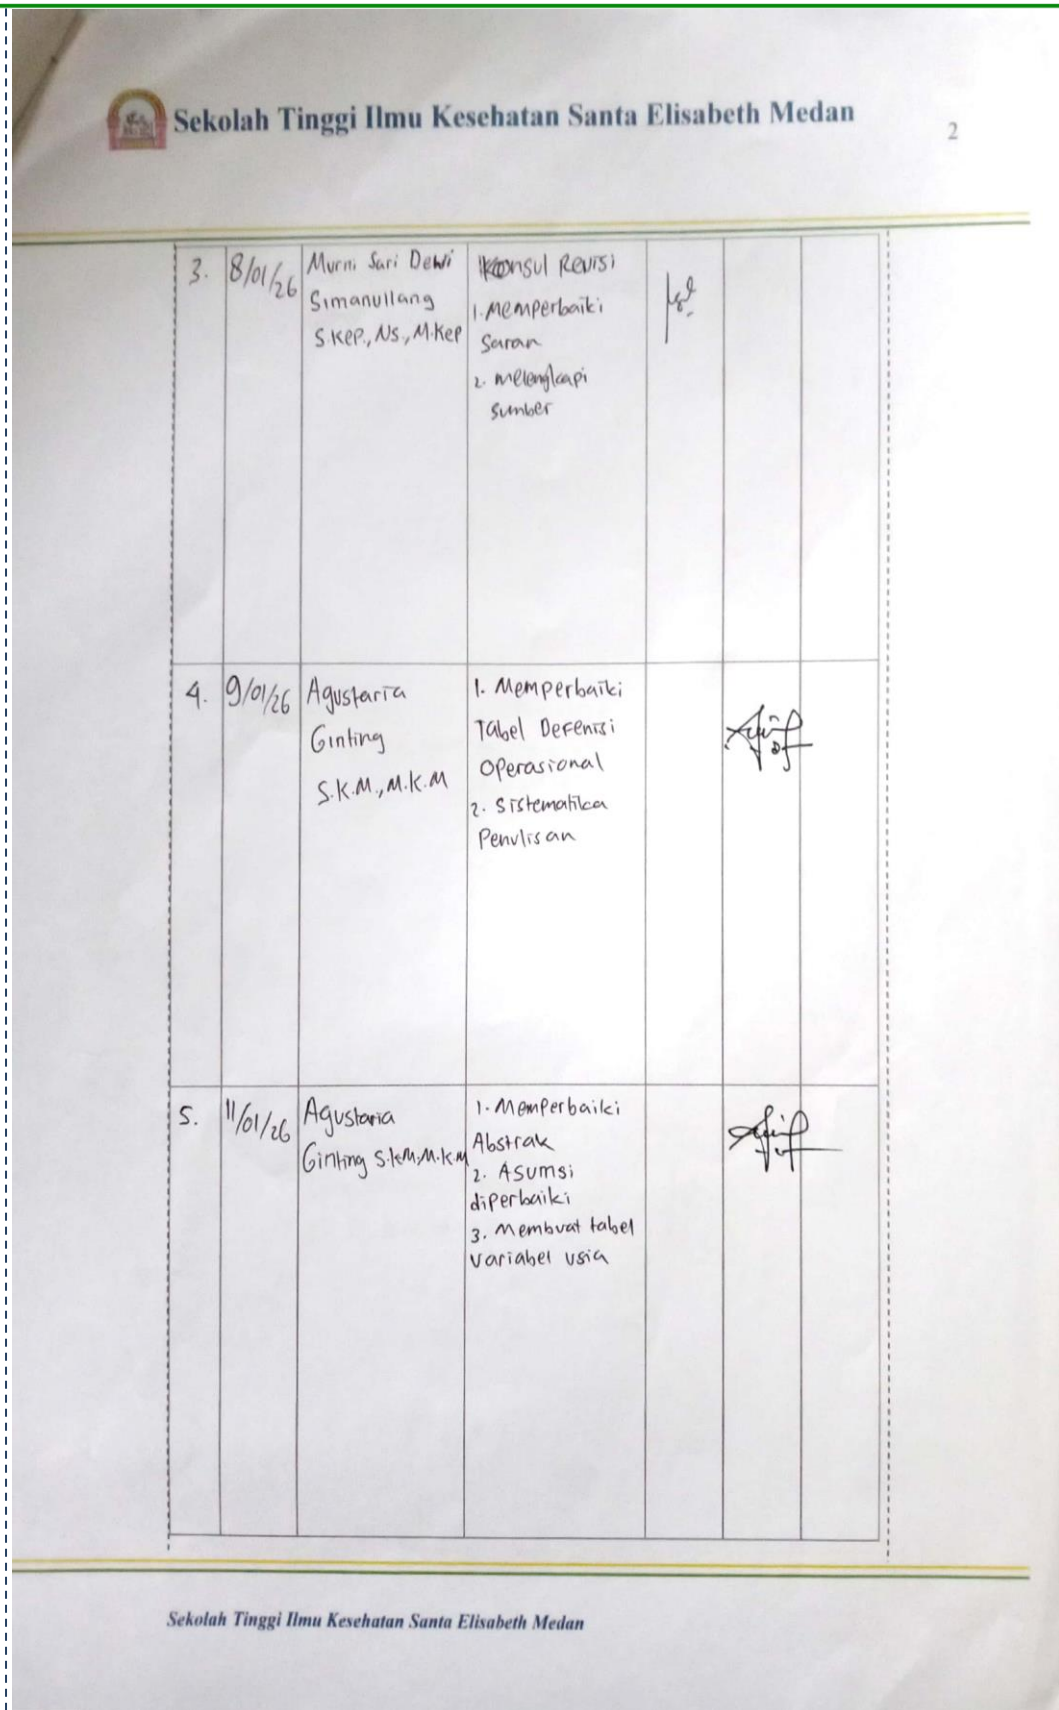 Sekolah Tinggi Ilmu Kesehatan Santa Elisabeth Medan
2
3.
8/01/26
Murni Sari Dewi
Simanullang
S.Kep., Ns., M.Kep
Konsul Revisi
1. Memperbaiki
Saran
2. melengkapi
Sumber
4.
9/01/26
Agustaria
Ginting
S.K.M., M.K.M
1. Memperbaiki
Tabel Defenisi
Operasional
2. Sistematika
Penulisan
5.
11/01/26
Agustaria
Ginting S.K.M., M.K.M
1. Memperbaiki
Abstrak
2. Asumsi
diperbaiki
3. Membuat tabel
Variabel usia
Sekolah Tinggi Ilmu Kesehatan Santa Elisabeth Medan